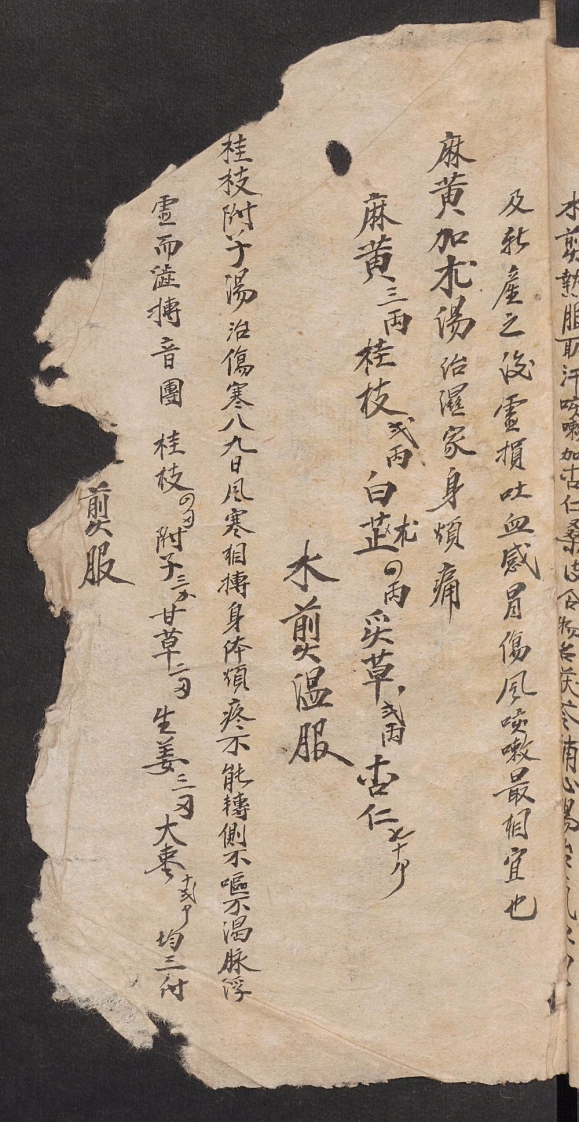 水煎熱服取汗咳嗽加杏仁桑皮
及新產之後虛損吐血感冒傷風咳嗽最相宜也
麻黄加朮湯治濕家身煩痛
麻黄三兩桂枝弍兩白朮四兩炙草弍兩杏仁七十个
水煎温服
桂枝附子湯治傷寒八九日風寒相搏身体煩疼不能轉側不嘔不渴脉浮
虛而澁搏音團 桂枝四刄附子三分甘草二刄生姜三刄大棗十弍个均三付
煎服